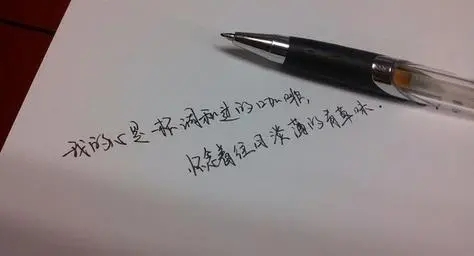 我的心是一杯调和过的咖啡，
怀念着往日淡薄的青草味．